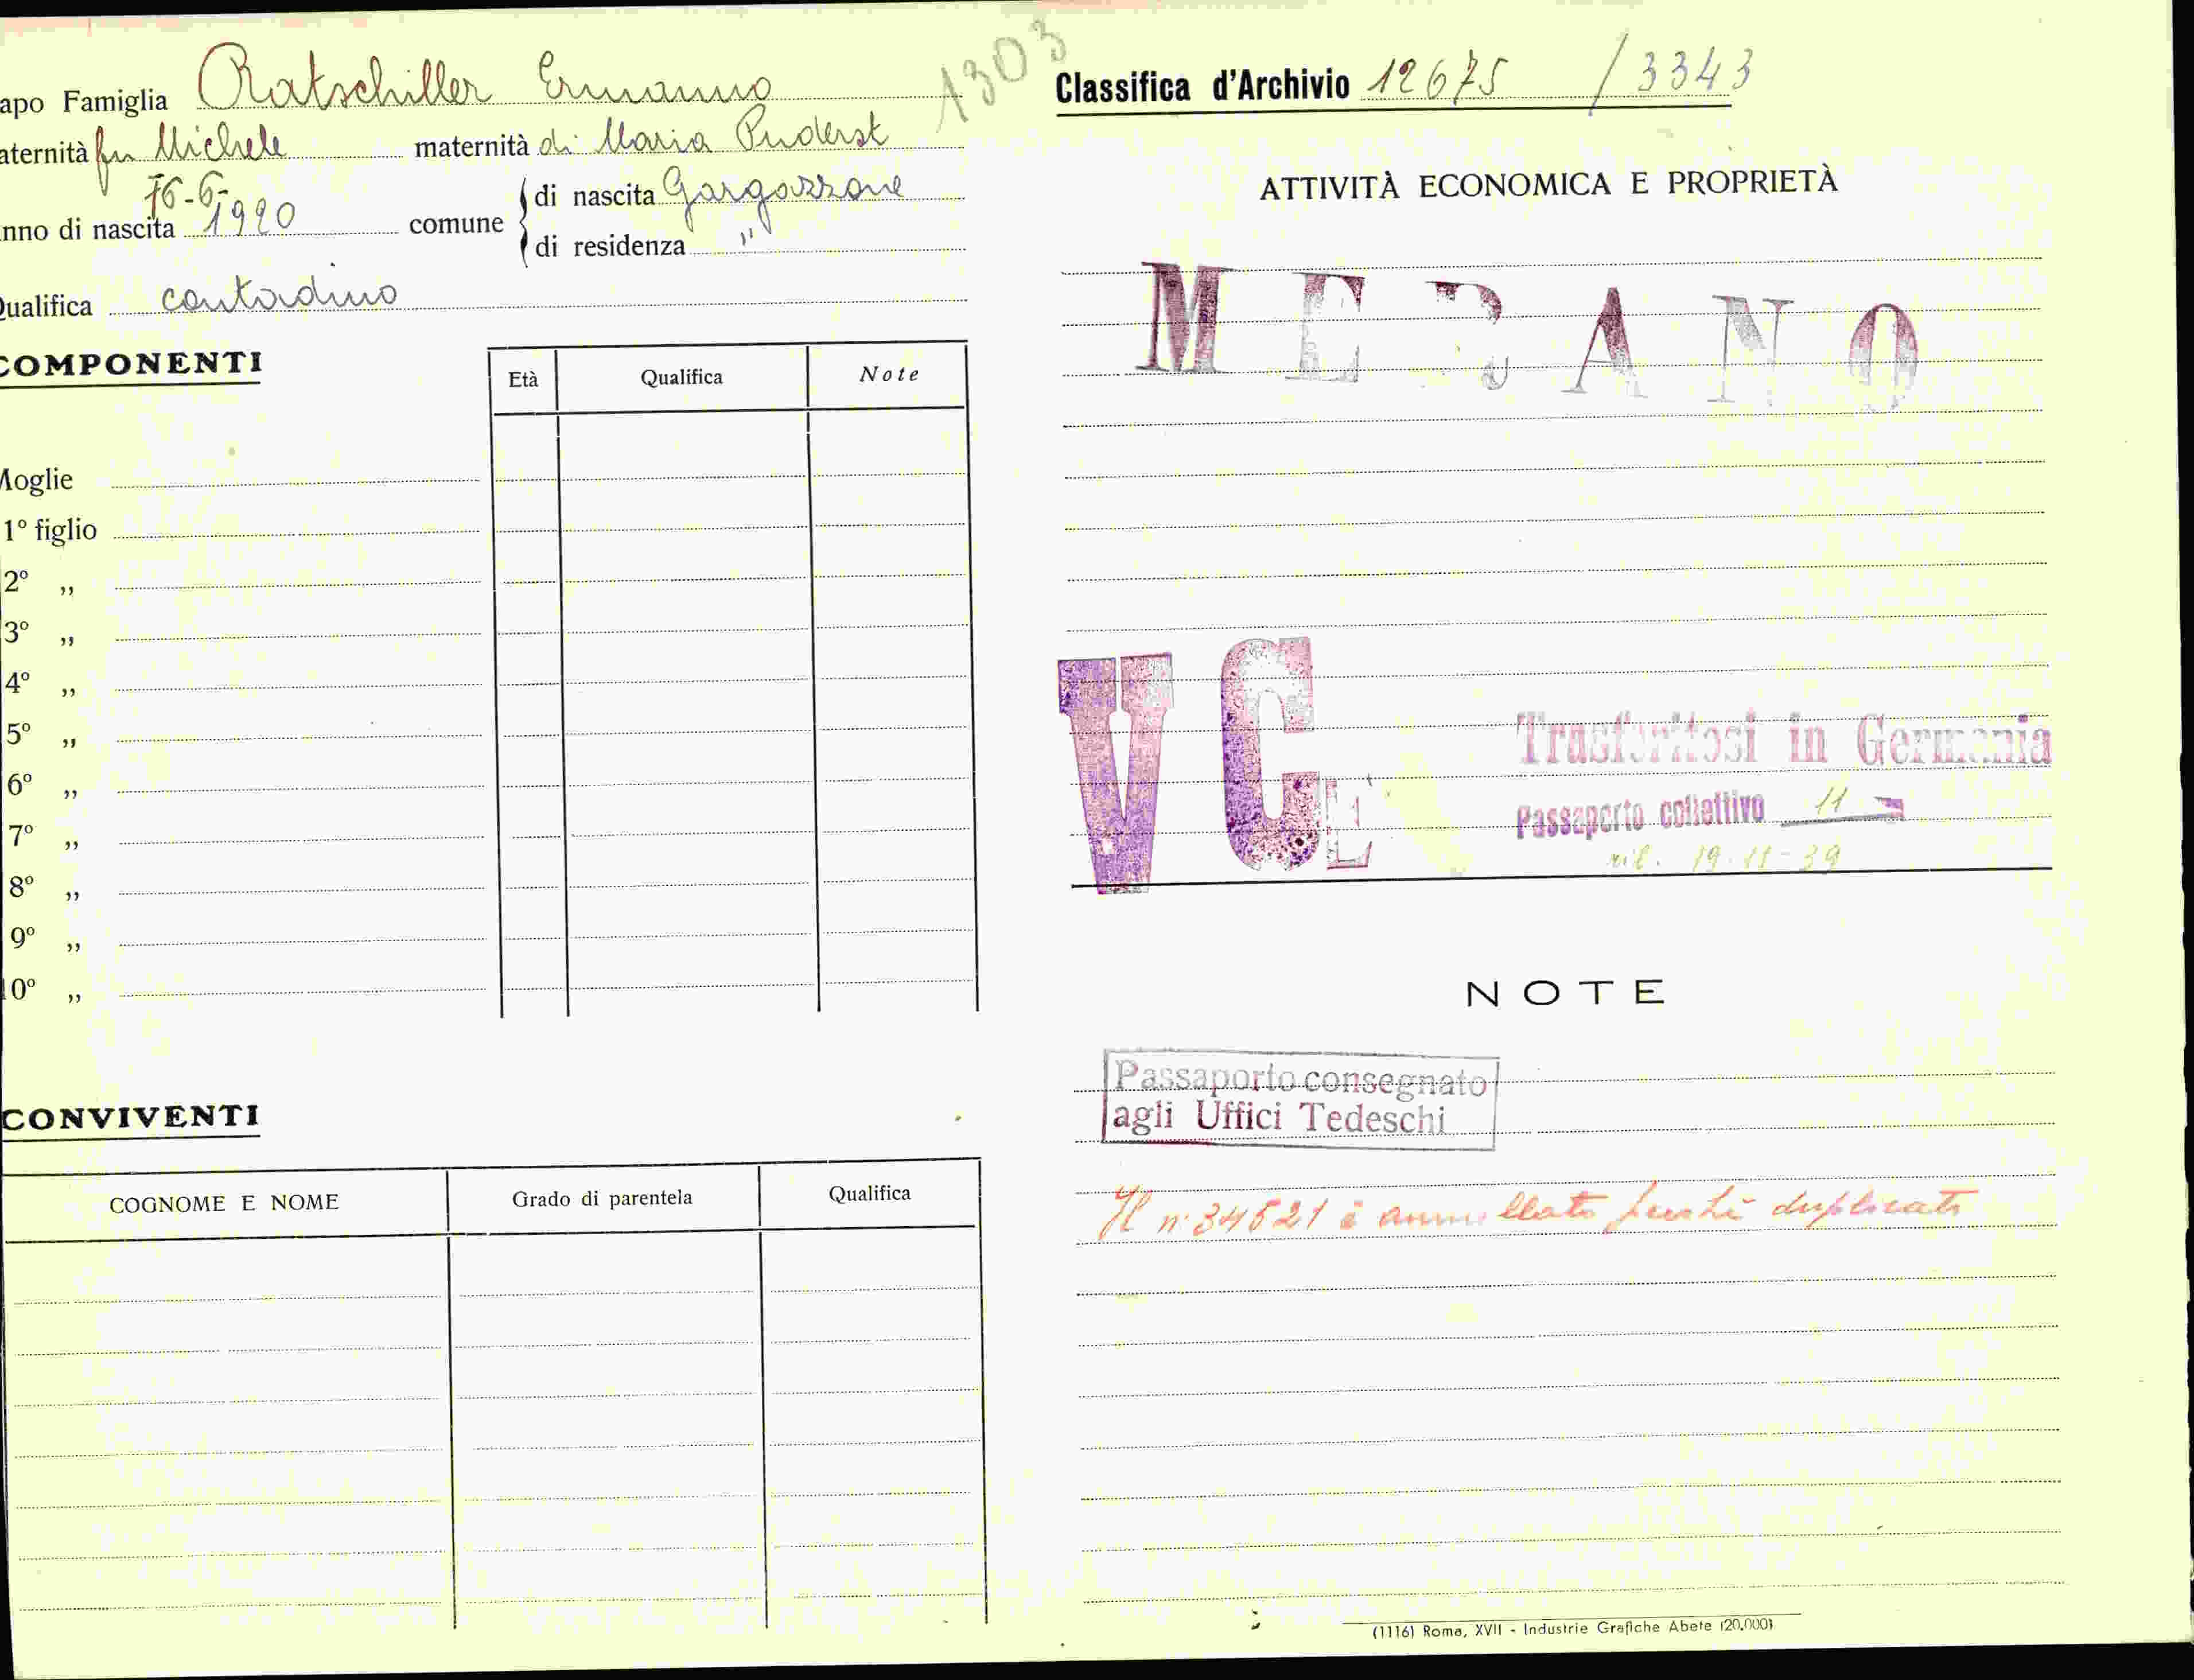 apo Famiglia Ratschiller Ermanno
1303
aternità fu Michele maternità di Maria Puderst
16-6-
nno di nascita 1920 comune di nascita Gargazzone
di residenza "
Qualifica contadino
COMPONENTI
Età Qualifica Note
Moglie
1º figlio
2º „
3º „
4º „
5º „
6º „
7º „
8º „
9º „
10º „
CONVIVENTI
COGNOME E NOME Grado di parentela Qualifica
Classifica d'Archivio 12675 / 3343
ATTIVITÀ ECONOMICA E PROPRIETÀ
MERANO
VC
Trasferitosi in Germania
Passaporto collettivo 11
ril. 19-11-39
NOTE
Passaporto consegnato
agli Uffici Tedeschi
Il n. 34521 è annullato perchè duplicato
(1116) Roma, XVII - Industrie Grafiche Abete (20.000)